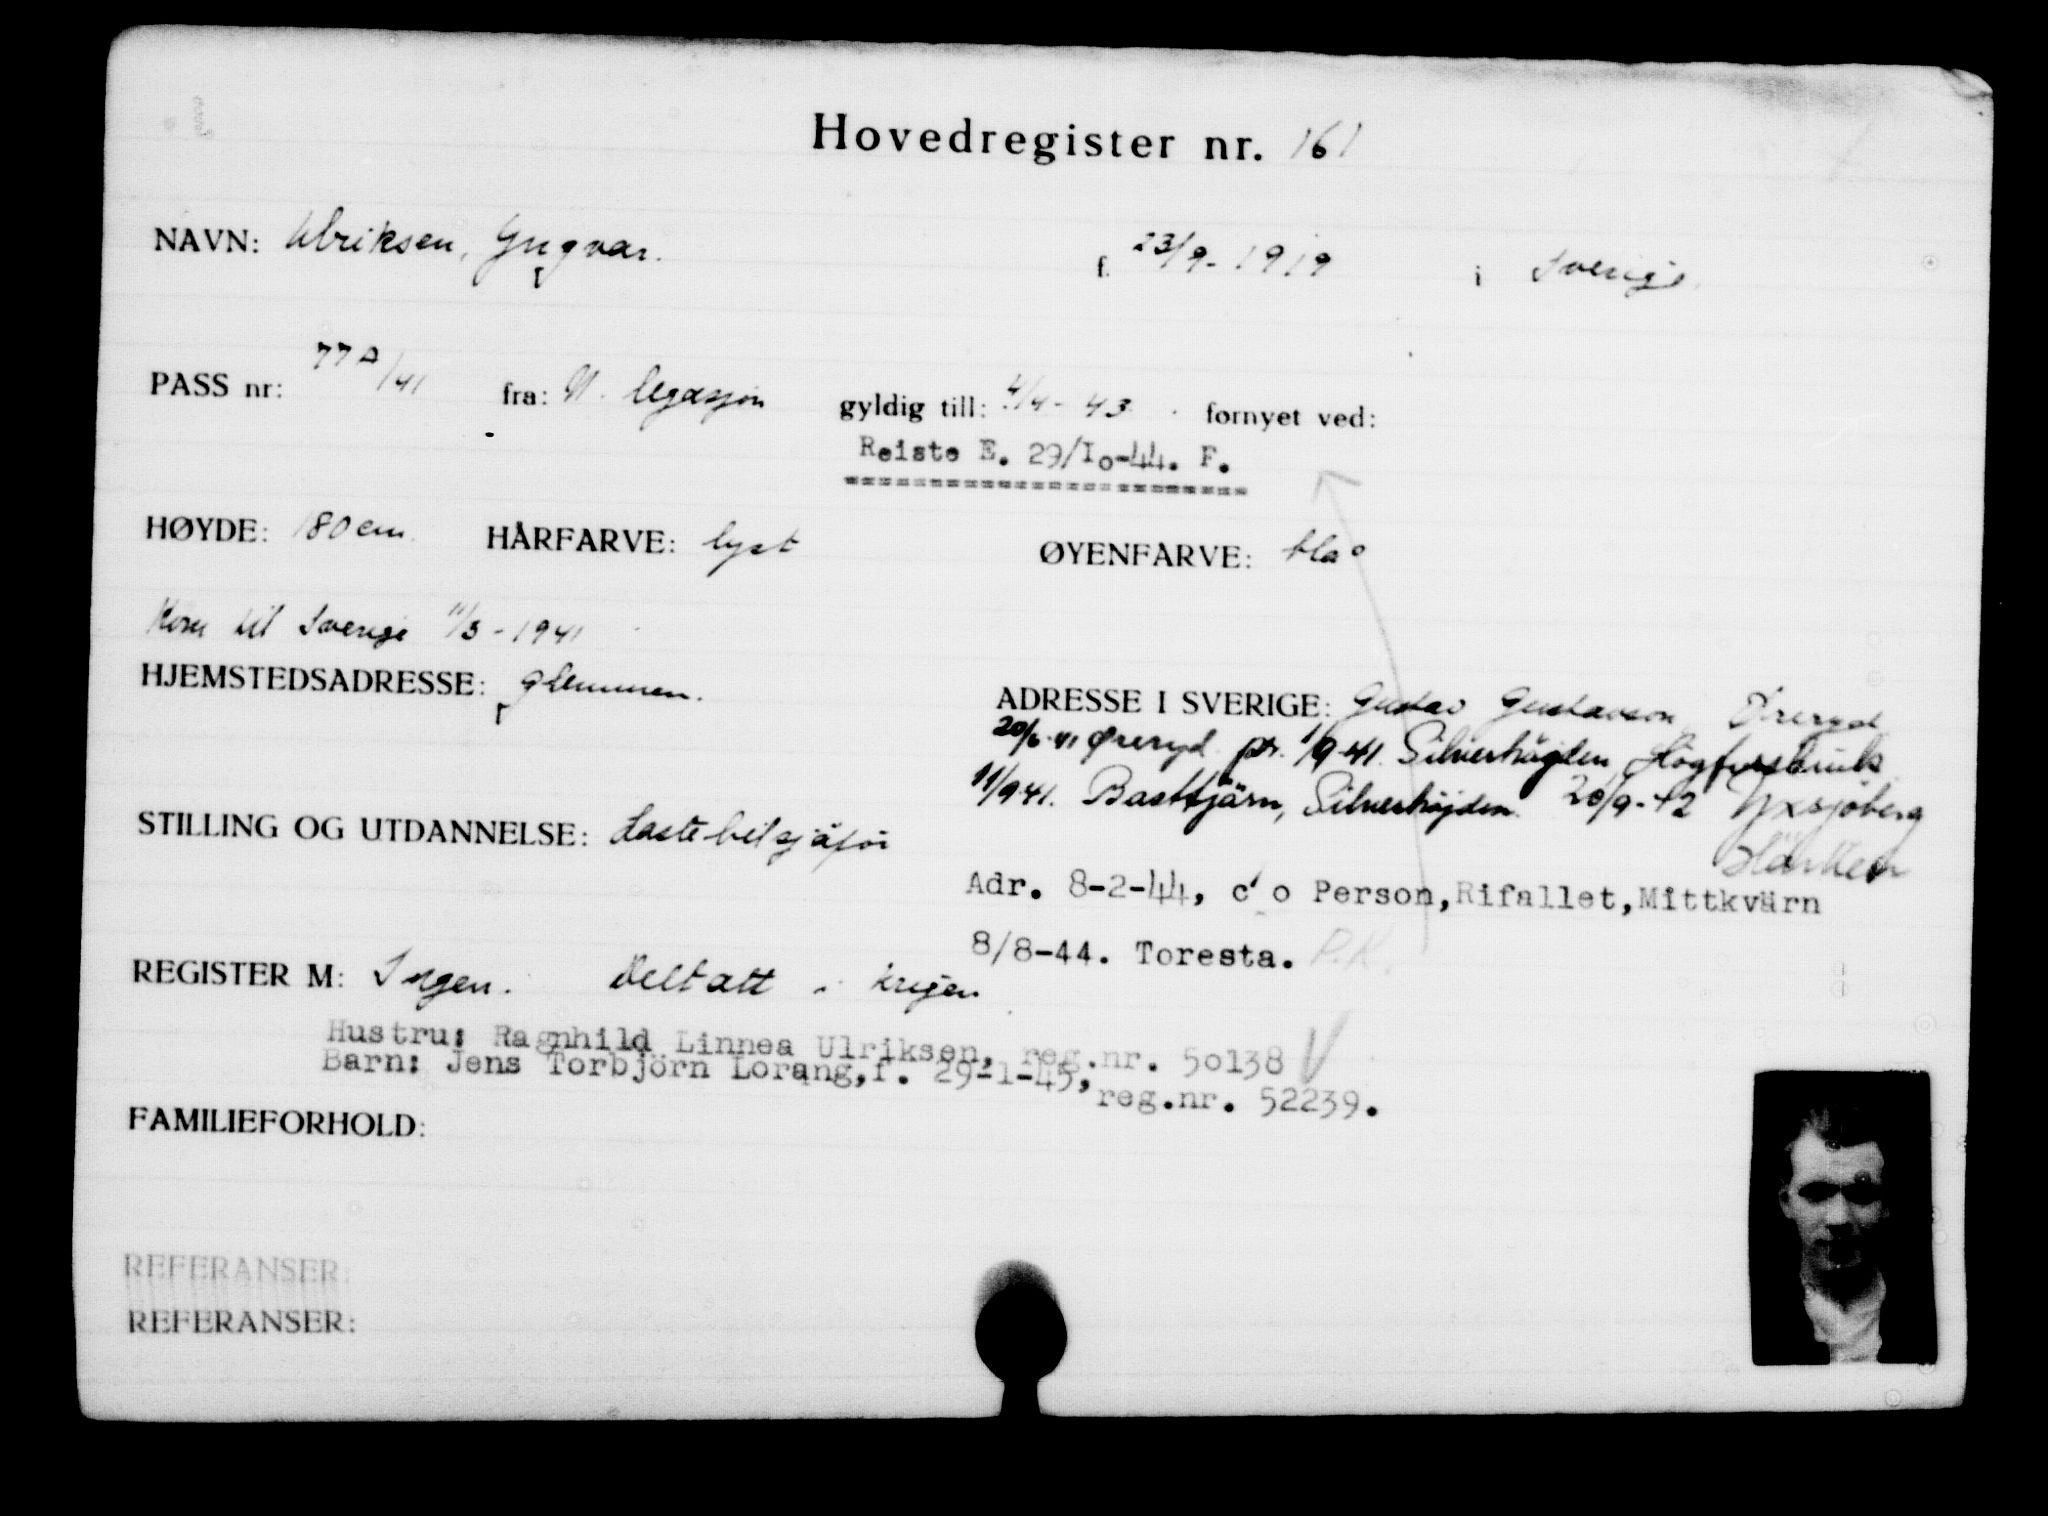 Hovedregister nr. 161
NAVN: Ulriksen, Yngvar. f. 23/9-1919 i Sverige.
PASS nr: 77A/41 fra: N. legasjon gyldig till: 4/4-43. fornyet ved:
Reiste E. 29/Io-44. F.
HØYDE: 180 cm. HÅRFARVE: lyst ØYENFARVE: blå
Kom til Sverige 11/3-1941
HJEMSTEDSADRESSE: Glemmen.
ADRESSE I SVERIGE: Gustav Gustavson, Øreryd
20/6-41 Øreryd pr. 1/9-41. Silverhögden, Högforsbruk
11/9-41. Basttjärn, Silverhöjden. 20/9-42 Yxsjöberg
STILLING OG UTDANNELSE: Lastebilsjåfør
Adr. 8-2-44, c/o Person, Rifallet, Mittkvärn
8/8-44. Toresta. P.K.
REGISTER M: Ingen. Deltatt i krigen
Hustru: Ragnhild Linnea Ulriksen, reg.nr. 50138 V
Barn: Jens Torbjörn Lorang, f. 29-1-45, reg.nr. 52239.
FAMILIEFORHOLD:
REFERANSER:
REFERANSER: